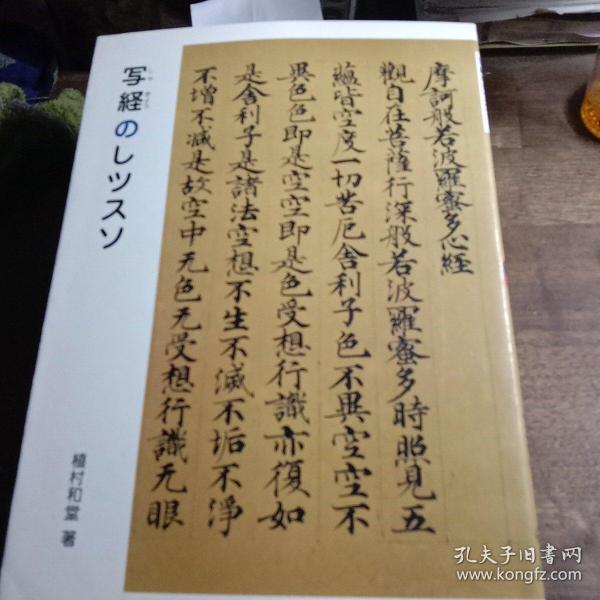 写経のレッスン
しゃ きょう
植村和堂 著
摩訶般若波羅蜜多心経
觀自在菩薩行深般若波羅蜜多時照見五
蘊皆空度一切苦厄舎利子色不異空空不
異色色即是空空即是色受想行識亦復如
是舎利子是諸法空想不生不滅不垢不淨
不増不減是故空中无色无受想行識无眼
孔夫子旧书网
www.kongfz.com